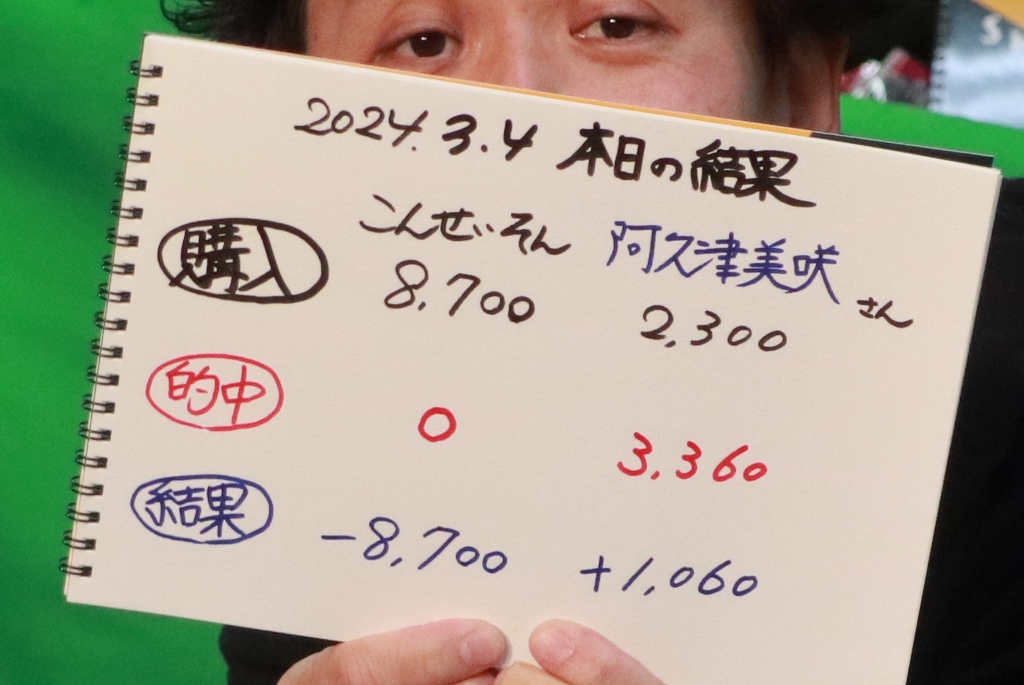 2024.3.4 本日の結果
こんせいそん 阿久津美咲さん
購入 8,700 2,300
的中 0 3,360
結果 -8,700 +1,060